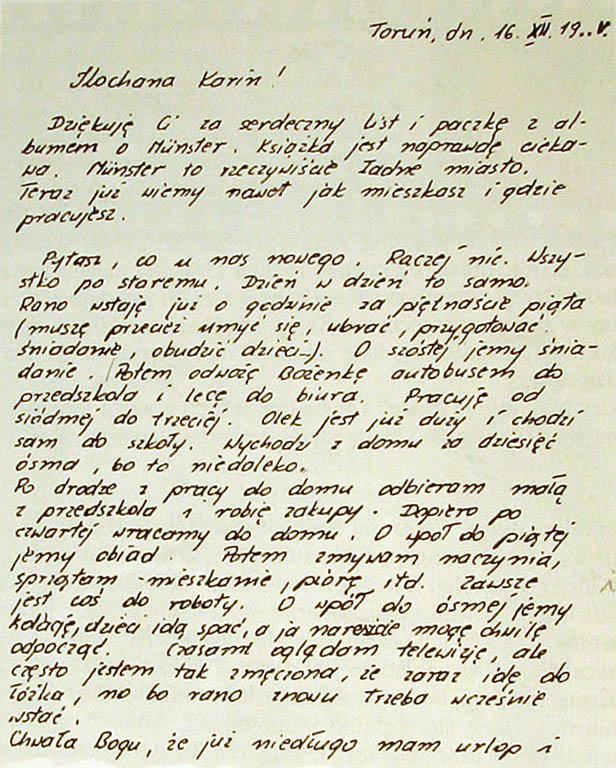 Toruń, dn. 16. XII. 19..r.
Kochana Karin!
Dziękuję Ci za serdeczny list i paczkę z al-
bumem o Münster. Książka jest naprawdę cieka-
wa. Münster to rzeczywiście ładne miasto.
Teraz już wiemy nawet jak mieszkasz i gdzie
pracujesz.
Pytasz, co u nas nowego. Raczej nic. Wszy-
stko po staremu. Dzień w dzień to samo.
Rano wstaję już o godzinie za piętnaście piąta
(muszę przecież umyć się, ubrać, przygotować
śniadanie, obudzić dzieci...). O szóstej jemy śnia-
danie. Potem odwożę Bożenkę autobusem do
przedszkola i lecę do biura. Pracuję od
siódmej do trzeciej. Olek jest już duży i chodzi
sam do szkoły. Wychodzi z domu za dziesięć
ósma, bo to niedaleko.
Po drodze z pracy do domu odbieram małą
z przedszkola i robię zakupy. Dopiero po
czwartej wracamy do domu. O wpół do piątej
jemy obiad. Potem zmywam naczynia,
sprzątam mieszkanie, piorę, itd. Zawsze
jest coś do roboty. O wpół do ósmej jemy
kolację, dzieci idą spać, a ja nareszcie mogę chwilę
odpocząć. Czasami oglądam telewizję, ale
często jestem tak zmęczona, że zaraz idę do
łóżka, no bo rano znowu trzeba wcześnie
wstać.
Chwała Bogu, że już niedługo mam urlop i